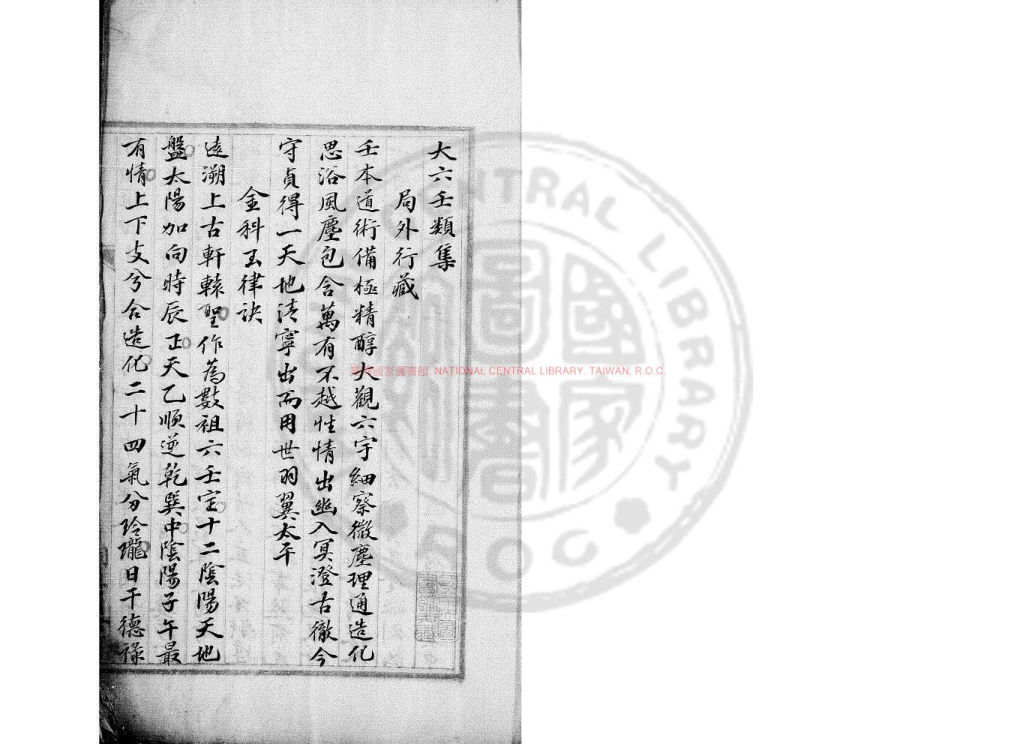 大六壬類集
局外行藏
壬本道術備極精醇大觀六宇細察微塵理通造化
思浴風塵包含萬有不越性情出幽入冥澄古徹今
守貞得一天地清寧出而用世羽翼太平
金科玉律訣
遠溯上古軒轅聖作為數祖六壬定十二陰陽天地
盤太陽加向時辰正天乙順逆乾巽中陰陽子午最
有情上下支兮合造化二十四氣分玲瓏日干德祿
NATIONAL CENTRAL LIBRARY, TAIWAN, R.O.C.
CENTRAL LIBRARY
ROC